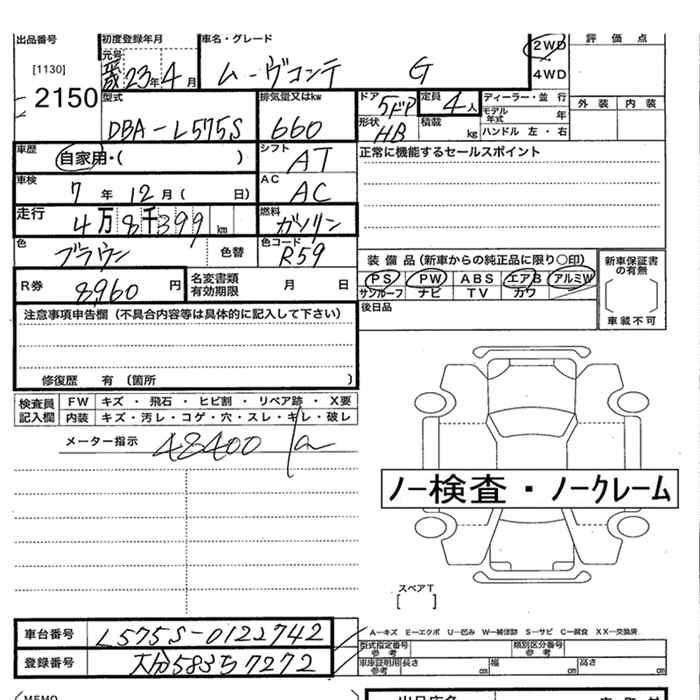 出品番号 初度登録年月 車名・グレード 評価点
元号
[1130] 23年4月 ムーヴコンテ G 2WD
2150 4WD 外装 内装
型式 排気量又はkw ドア 5ドア 定員 4人 ディーラー・並行
DBA-L575S 660 形状 HB 積載 kg モデル年式 年
ハンドル 左・右
車歴 自家用・( ) シフト AT 正常に機能するセールスポイント
車検 7年12月( 日) AC AC
走行 4万8千399km 燃料 ガソリン
色 ブラウン 色替 色コード R59 装備品(新車からの純正品に限り○印) 新車保証書の有無
PS PW ABS エアB アルミW
R券 8,960円 名変書類有効期限 月 日 サンルーフ ナビ TV カワ
後日品 車載不可
注意事項申告欄(不具合内容等は具体的に記入して下さい)
修復歴 有(箇所 )
検査員記入欄 FW キズ・飛石・ヒビ割・リペア跡・X要
内装 キズ・汚レ・コゲ・穴・スレ・キレ・破レ
メーター指示 48400
ノー検査・ノークレーム
スペアT
[ ]
車台番号 L575S-0122742 A－キズ E－エクボ U－凹み W－補修跡 S－サビ C－腐食 XX－交換済
型式指定番号 参考 類別区分番号 参考
登録番号 大分583ち7272 車庫証明用 参考 長さ cm 幅 cm 高さ cm
MEMO 出品店名